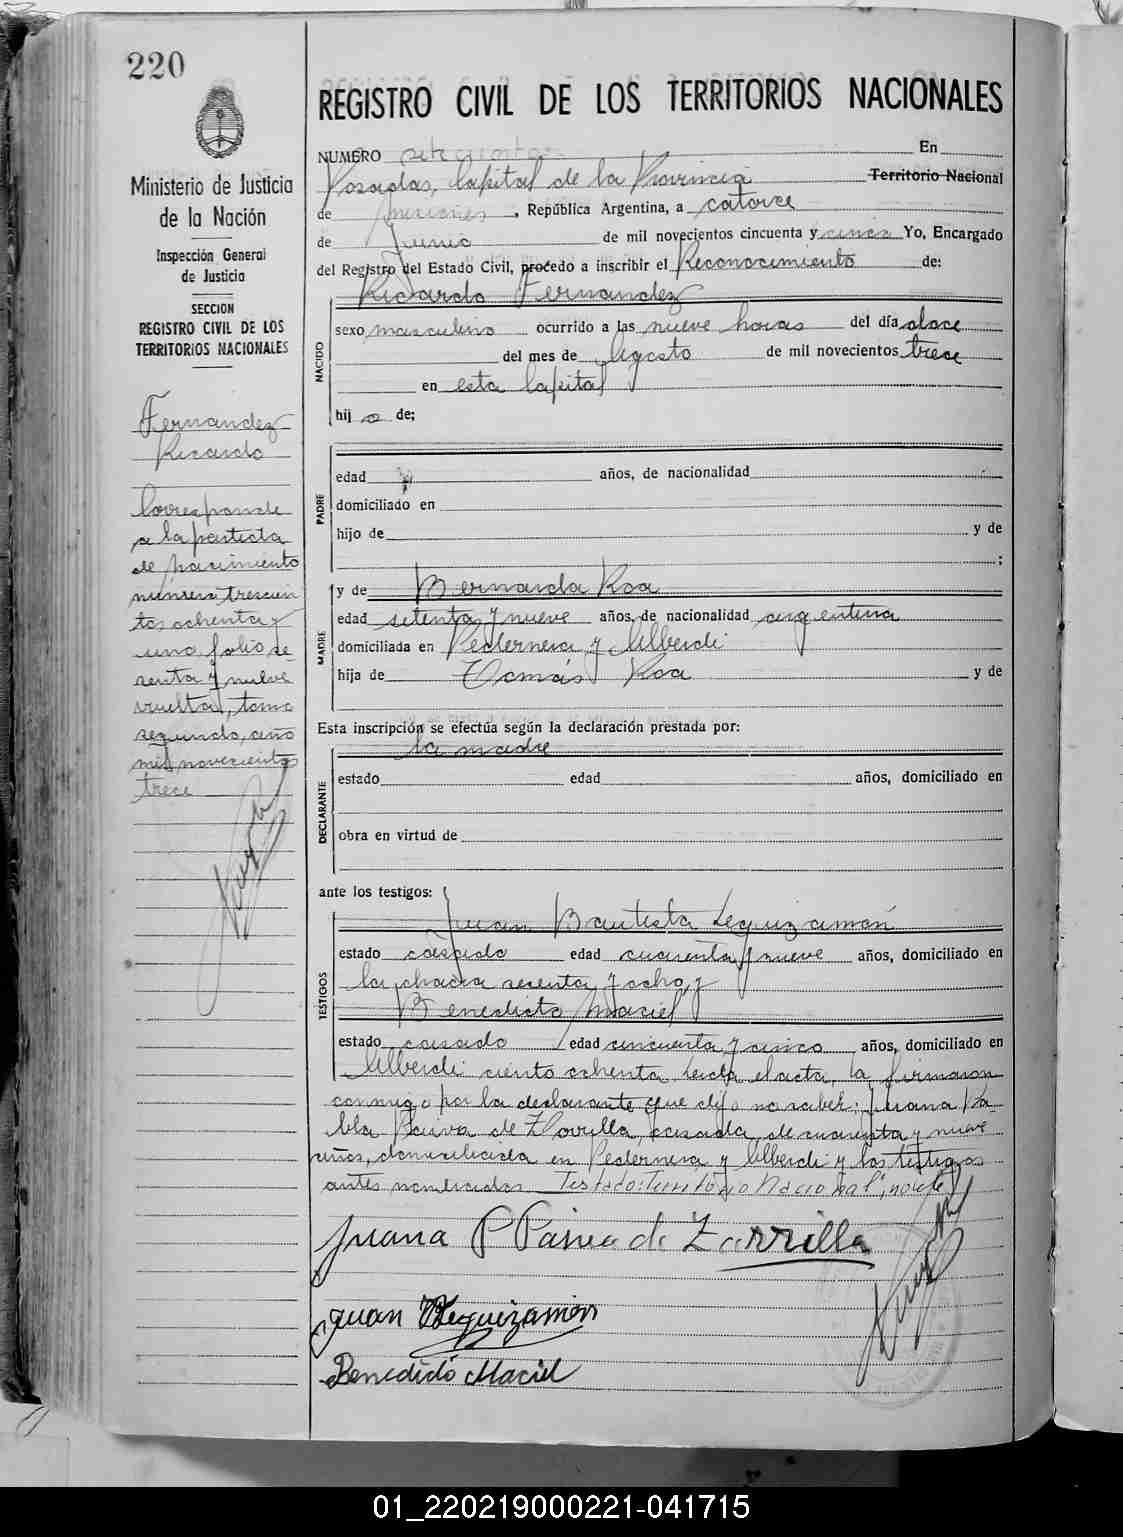 220
Ministerio de Justicia
de la Nación
Inspección General
de Justicia
SECCION
REGISTRO CIVIL DE LOS
TERRITORIOS NACIONALES
Fernandez
Ricardo
Corresponde
a la partida
de nacimiento
número trescien
tos ochenta y
uno, folio se-
senta y nueve
vuelta, tomo
segundo, año
mil novecientos
trece
REGISTRO CIVIL DE LOS TERRITORIOS NACIONALES
NUMERO setecientos En
Posadas, Capital de la Provincia Territorio Nacional
de Misiones, República Argentina, a catorce
de Junio de mil novecientos cincuenta y cinco Yo, Encargado
del Registro del Estado Civil, procedo a inscribir el Reconocimiento de:
Ricardo Fernandez
NACIDO
sexo masculino ocurrido a las nueve horas del día doce
del mes de Agosto de mil novecientos trece
en esta Capital
hijo de;
PADRE
edad años, de nacionalidad
domiciliado en
hijo de y de
;
MADRE
y de Bernarda Roa
edad setenta y nueve años, de nacionalidad argentina
domiciliada en Pedernera y Alberdi
hija de Tomás Roa y de
Esta inscripción se efectúa según la declaración prestada por:
la madre
DECLARANTE
estado edad años, domiciliado en
obra en virtud de
ante los testigos:
TESTIGOS
Juan Bautista Leguizamón
estado casado edad cuarenta y nueve años, domiciliado en
la chacra sesenta y ocho, y
Benedicto Maciel
estado casado edad cincuenta y cinco años, domiciliado en
Alberdi ciento ochenta. Leída el acta, la firmaron
conmigo por la declarante que dijo no saber: Juana Pa-
bla de Zorrilla, casada, de cuarenta y nueve
años, domiciliada en Pedernera y Alberdi y los testigos
antes nombrados. Testado: Territorio Nacional;
Juana P de Zorrilla
Juan B Leguizamón
Benedicto Maciel
01_220219000221-041715